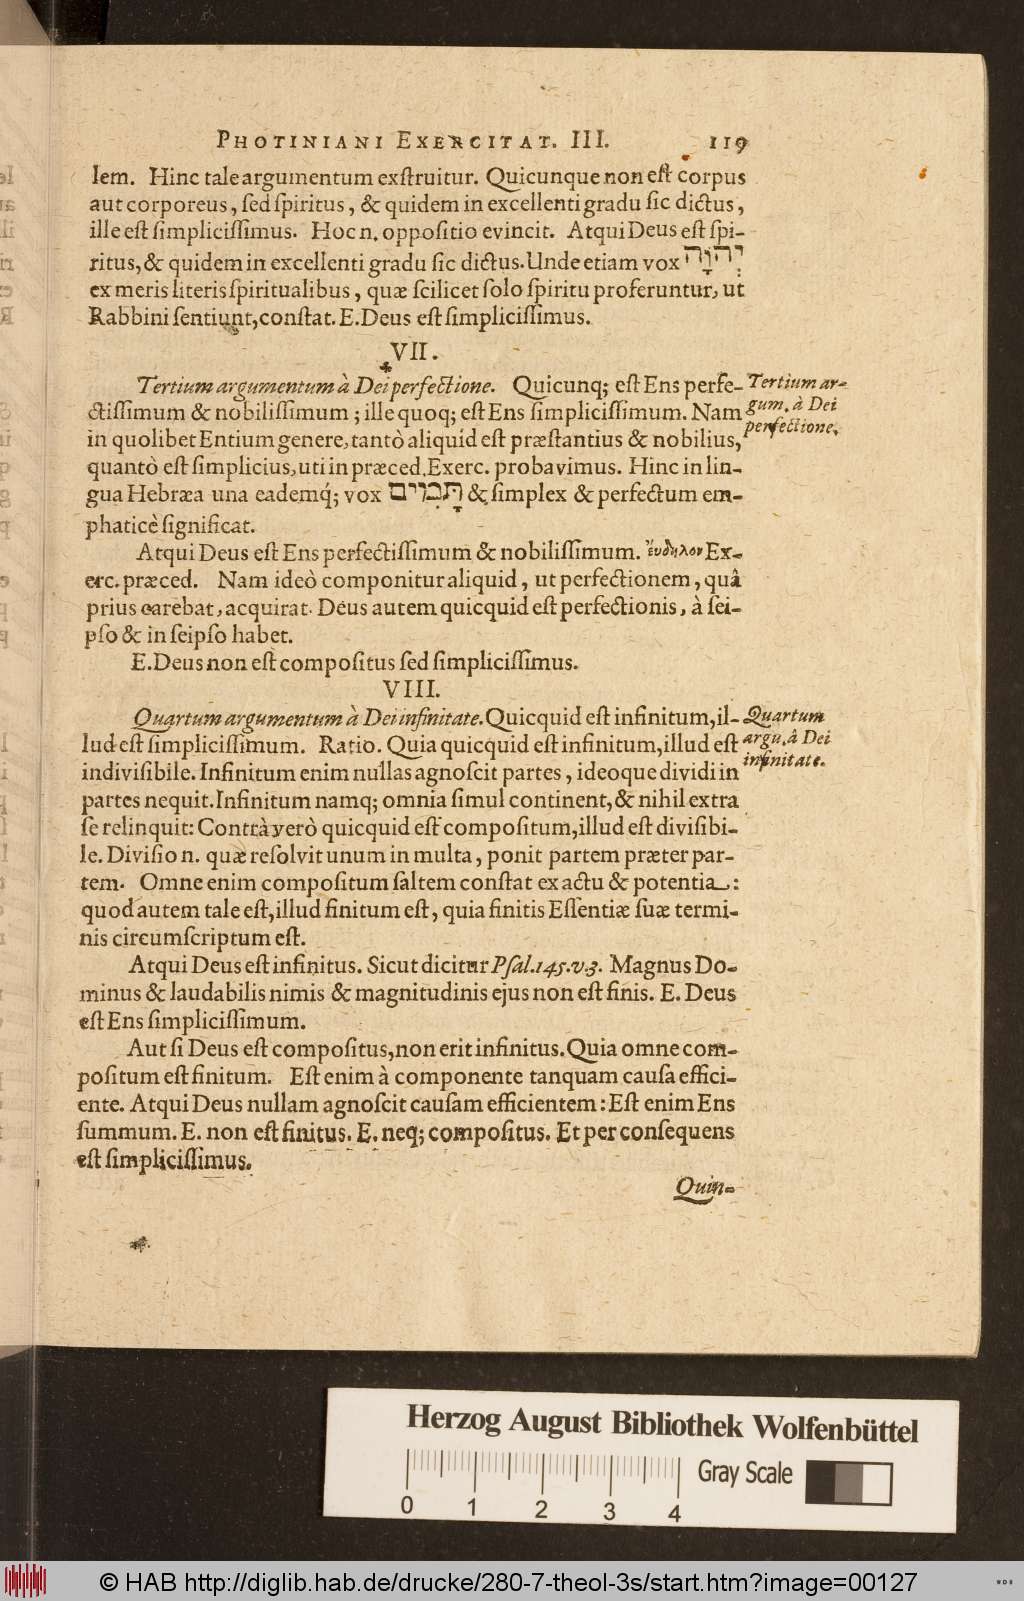 PHOTINIANI EXERCITAT. III. 119
lem. Hinc tale argumentum exſtruitur. Quicunque non eſt corpus
aut corporeus, ſed ſpiritus, & quidem in excellenti gradu ſic dictus,
ille eſt ſimpliciſſimus. Hoc n. oppoſitio evincit. Atqui Deus eſt ſpi-
ritus, & quidem in excellenti gradu ſic dictus. Unde etiam vox יְהוָֹה
ex meris literis ſpiritualibus, quæ ſcilicet ſolo ſpiritu proferuntur, ut
Rabbini ſentiunt, conſtat. E. Deus eſt ſimpliciſſimus.
VII.
Tertium argumentum à Dei perfectione. Quicunq; eſt Ens perfe-
ctiſſimum & nobiliſſimum; ille quoq; eſt Ens ſimpliciſſimum. Nam
in quolibet Entium genere, tantò aliquid eſt præſtantius & nobilius,
quantò eſt ſimplicius, uti in præced. Exerc. probavimus. Hinc in lin-
gua Hebræa una eademq́; vox & ſimplex & perfectum em-
phaticè ſignificat.
Tertium ar-
gum. à Dei
perfectione.
Atqui Deus eſt Ens perfectiſſimum & nobiliſſimum. Ex-
erc. præced. Nam ideò componitur aliquid, ut perfectionem, quâ
prius carebat, acquirat. Deus autem quicquid eſt perfectionis, à ſei-
pſo & in ſeipſo habet.
E. Deus non eſt compoſitus ſed ſimpliciſſimus.
VIII.
Quartum argumentum à Dei infinitate. Quicquid eſt infinitum, il-
lud eſt ſimpliciſſimum. Ratio. Quia quicquid eſt infinitum, illud eſt
indiviſibile. Infinitum enim nullas agnoſcit partes, ideoque dividi in
partes nequit. Infinitum namq; omnia ſimul continent, & nihil extra
ſe relinquit: Contrà verò quicquid eſt compoſitum, illud eſt diviſibi-
le. Diviſio n. quæ reſolvit unum in multa, ponit partem præter par-
tem. Omne enim compoſitum ſaltem conſtat ex actu & potentia:
quod autem tale eſt, illud finitum eſt, quia finitis Eſſentiæ ſuæ termi-
nis circumſcriptum eſt.
Quartum
argu. à Dei
infinitate.
Atqui Deus eſt infinitus. Sicut dicitur Pſal. 145. v. 3. Magnus Do-
minus & laudabilis nimis & magnitudinis ejus non eſt finis. E. Deus
eſt Ens ſimpliciſſimum.
Aut ſi Deus eſt compoſitus, non erit infinitus. Quia omne com-
poſitum eſt finitum. Eſt enim à componente tanquam cauſa effici-
ente. Atqui Deus nullam agnoſcit cauſam efficientem: Eſt enim Ens
ſummum. E. non eſt finitus. E. neq; compoſitus. Et per conſequens
eſt ſimpliciſſimus.
Quin-
Herzog August Bibliothek Wolfenbüttel
Gray Scale
0 1 2 3 4
© HAB http://diglib.hab.de/drucke/280-7-theol-3s/start.htm?image=00127